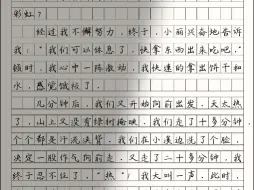 彩虹？
经过我不懈努力，终于，小丽兴奋地告诉
我：“我们可以休息了，快拿东西出来吃吧。”
顿时，我心中一阵激动，我快速的拿出饼干和
水，感觉饿极了。
几分钟后，我们又开始向前出发，天太热
了，山上又没有绿树掩映，我们走了几分钟，个
个都是汗流浃背。我们在小溪边洗了个脸，
决定一股作气向前走，又走了二十多分钟，我
终于忍不住了，“热！”我大叫一声，此时，